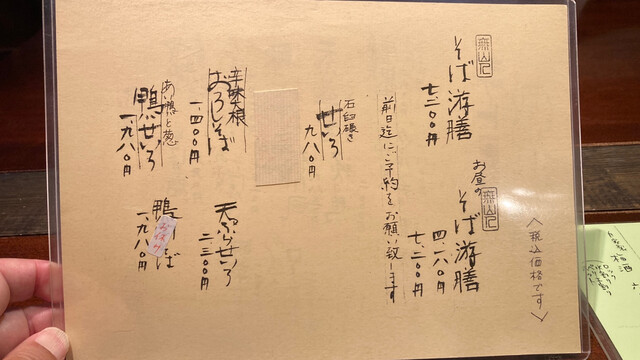 〈税込価格です〉
そば游膳
七、二〇〇円
お昼の
そば游膳
四、一八〇円
七、二〇〇円
前日迄にご予約をお願い致します
石臼碾き
せいろ
九八〇円
辛味大根
おろしそば
一、四〇〇円
天ぷらせいろ
二、二〇〇円
あい鴨と葱
鴨せいろ
一、九八〇円
鴨
ば
一、九八〇円